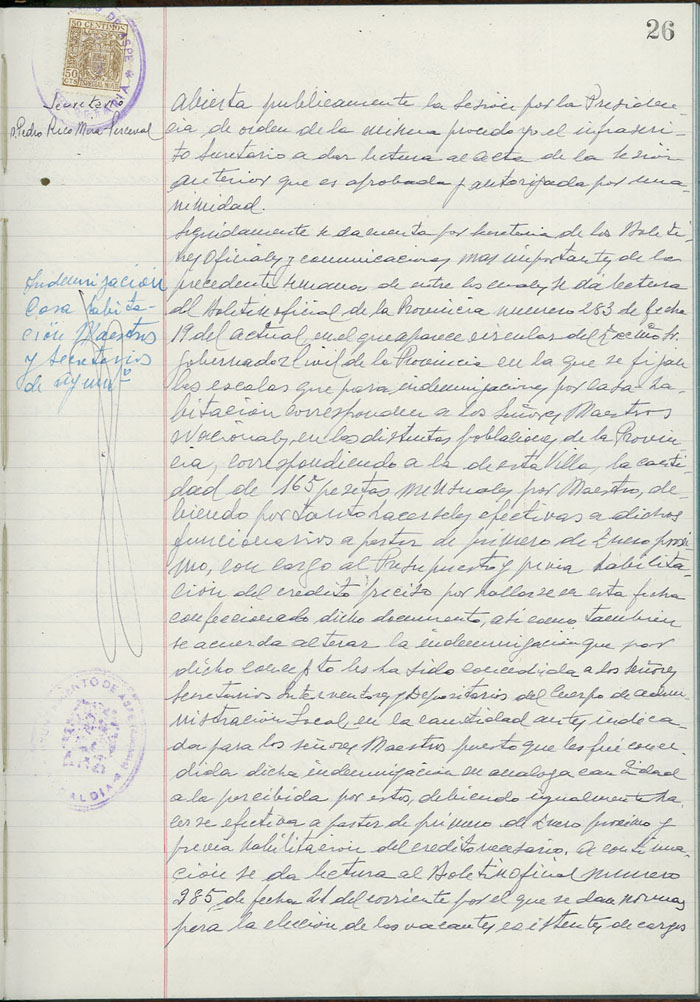 26
50 CENTIMOS
50
Secretario
D. Pedro Rico Mora Perceval
Abierta publicamente la sesión por la Presiden-
cia, de orden de la misma procedo yo el infrascri-
to Secretario a dar lectura al acta de la sesión
anterior que es aprobada y autorizada por una-
nimidad.
Seguidamente se da cuenta por Secretaria de los Boleti-
nes Oficiales y comunicaciones mas importantes de la
precedente semana, de entre los cuales se da lectura
al Boletin oficial de la Provincia numero 283 de fecha
19 del actual, en el que aparece circular del Excmo Sr.
Gobernador Civil de la Provincia en la que se fijan
las escalas que para indemnizaciones por casa ha-
bitación corresponden a los Señores Maestros
Nacionales, en las distintas poblaciones de la Provin-
cia, correspondiendo a la de esta Villa, la canti-
dad de 165 pesetas mensuales por Maestro, de-
biendo por tanto hacerseles efectivas a dichos
funcionarios a partir de primero de Enero proxi-
mo, con cargo al Presupuesto y previa habilita-
ción del credito preciso por hallarse en esta fecha
confeccionado dicho documento, asi como tambien
se acuerda alterar la indemnización que por
dicho concepto les ha sido concedida a los Señores
Secretarios Interventores y Depositarios del Cuerpo de admi-
nistración Local, en la cantidad antes indica-
da para los señores Maestros puesto que les fué conce-
dida dicha indemnización en analoga cantidad
a la percibida por estos, debiendo igualmente ha-
cerse efectiva a partir de primero de Enero proximo y
previa habilitación del credito necesario. A continua-
ción se da lectura al Boletin Oficial numero
285, de fecha 21 del corriente por el que se dan normas
para la elección de las vacantes existentes de cargos
Indemnización
Casa habita-
ción Maestros
y Secretarios
de
AYUNTAMIENTO DE ASPE
ALCALDIA